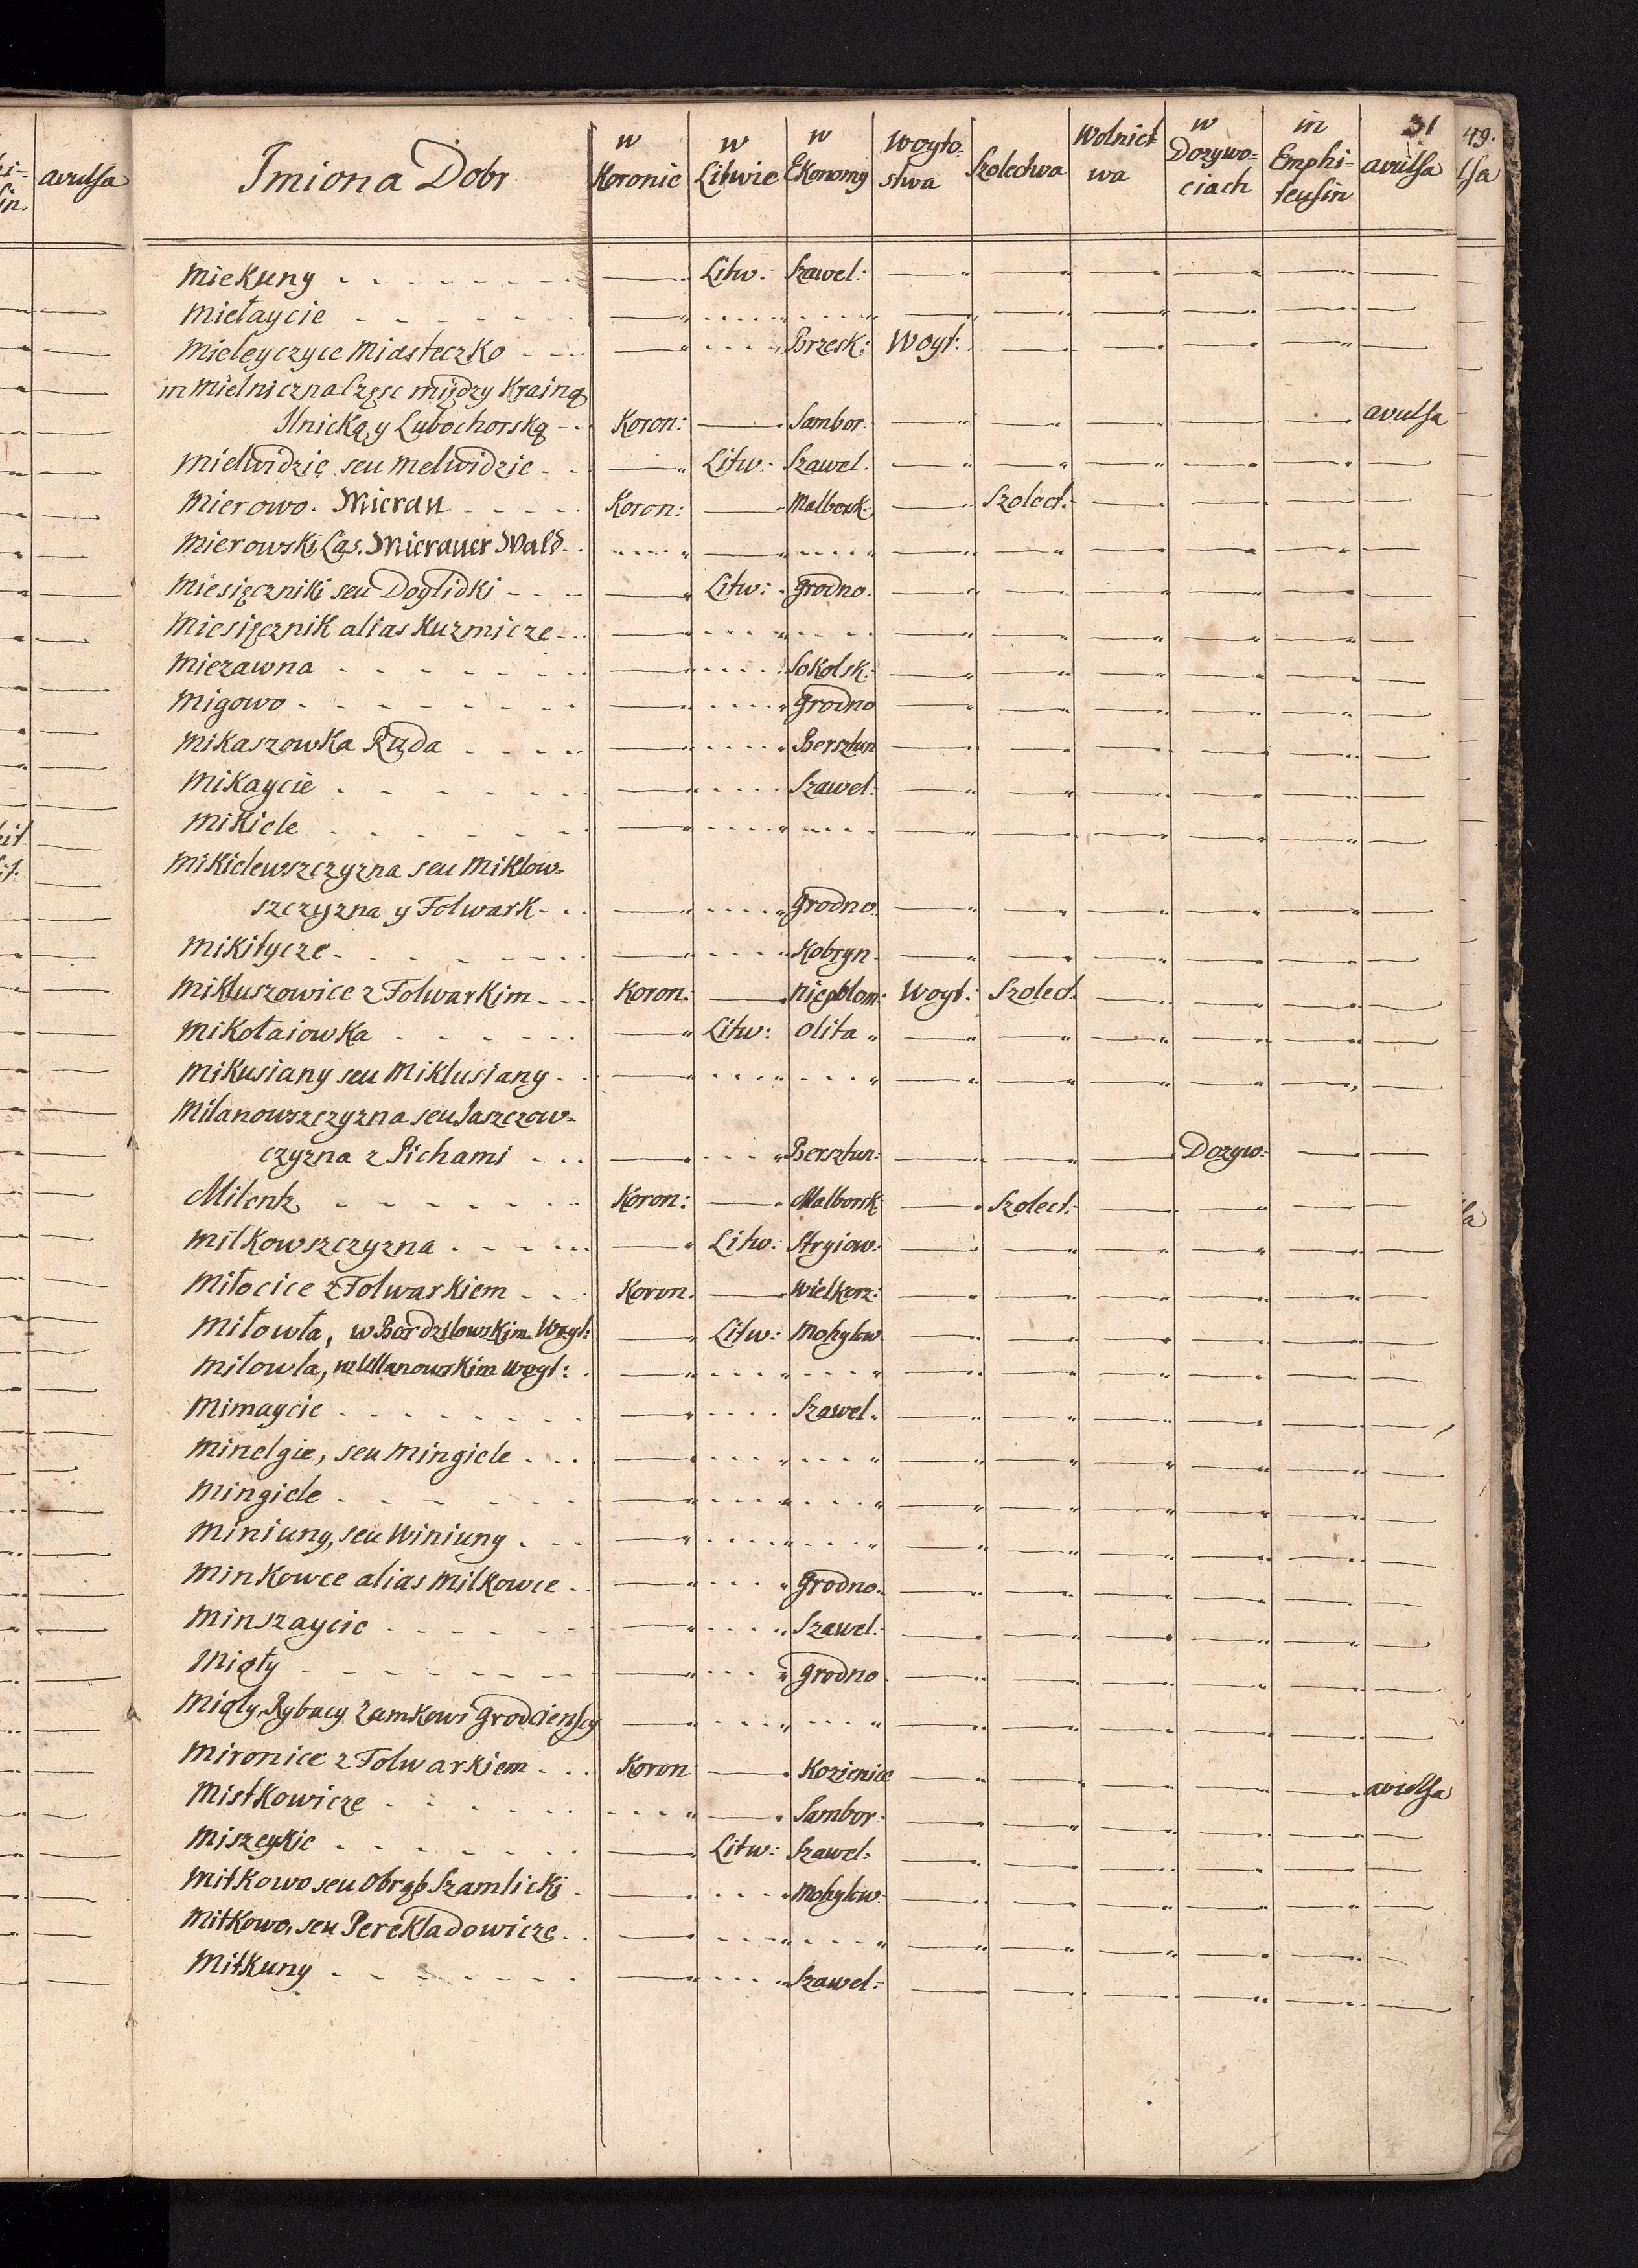 31
49.
Imiona Dobr | w Koronie | w Litwie | w Ekonomy | Woyto-stwa | Szolectwa | Wolnict wa | w Dozywo=ciach | in Emphi=teusin | avulsa
avulsa
lsa
Miekuny | Litw: | Szawel:
Mietaycie
Mieleyczyce Miasteczko | Brzesk: | Woyt:
in Mielniczna Częsc między Krainą
Ilnicką y Lubochorską | Koron: | Sambor. | avulsa
Mielwidzie seu Melwidzie | Litw: | Szawel.
Mierowo. Mierau | Koron: | Malbork: | Szolect:
Mierowski Las. Mierauer Wald
Miesięczniki seu Doglidki | Litw: | Grodno.
Miesięcznik alias Kuzmicze
Miezawna | Sokolsk:
Migowo | Grodno
Mikaszowka Ruda | Bersztun
Mikaycie | Szawel:
Mikiele
Mikielewszczyzna seu Miklow-
szczyzna y Folwark | Grodno.
Mikitycze | Kobryn.
Mikluszowice z Folwarkim | Koron: | Niepolom: | Woyt: | Szolect.
Mikołaiowka | Litw: | Olita
Mikusiany seu Miklusiany
Milanowszczyzna seu Jaszczow-
czyzna z Pichami | Bersztun: | Dozyw:
Milentz | Koron: | Malborsk: | Szolect:
Milkowszczyzna | Litw: | Stryiow:
Miłocice z Folwarkiem | Koron. | Wielkorz:
Miłowła, w Bordziłowskim Woyt: | Litw: | Mohylow
Milowla, w Ulanowskim Woyt:
Mimaycie | Szawel.
Minelgie, seu Mingiele
Mingiele
Miniuny, seu Winiuny
Minkowce alias Milkowce | Grodno.
Minszaycie | Szawel.
Mioły | Grodno
Mioły, Rybacy Zamkowi Grodcienscy
Mironice z Folwarkiem | Koron | Kozienice | avulsa
Mistkowicze | Sambor.
Miszeykie | Litw: | Szawel:
Mitkowo seu Obrąb Szamlicki | Mohylow.
Mitkowo, seu Perekladowicze
Mitkuny | Szawel: